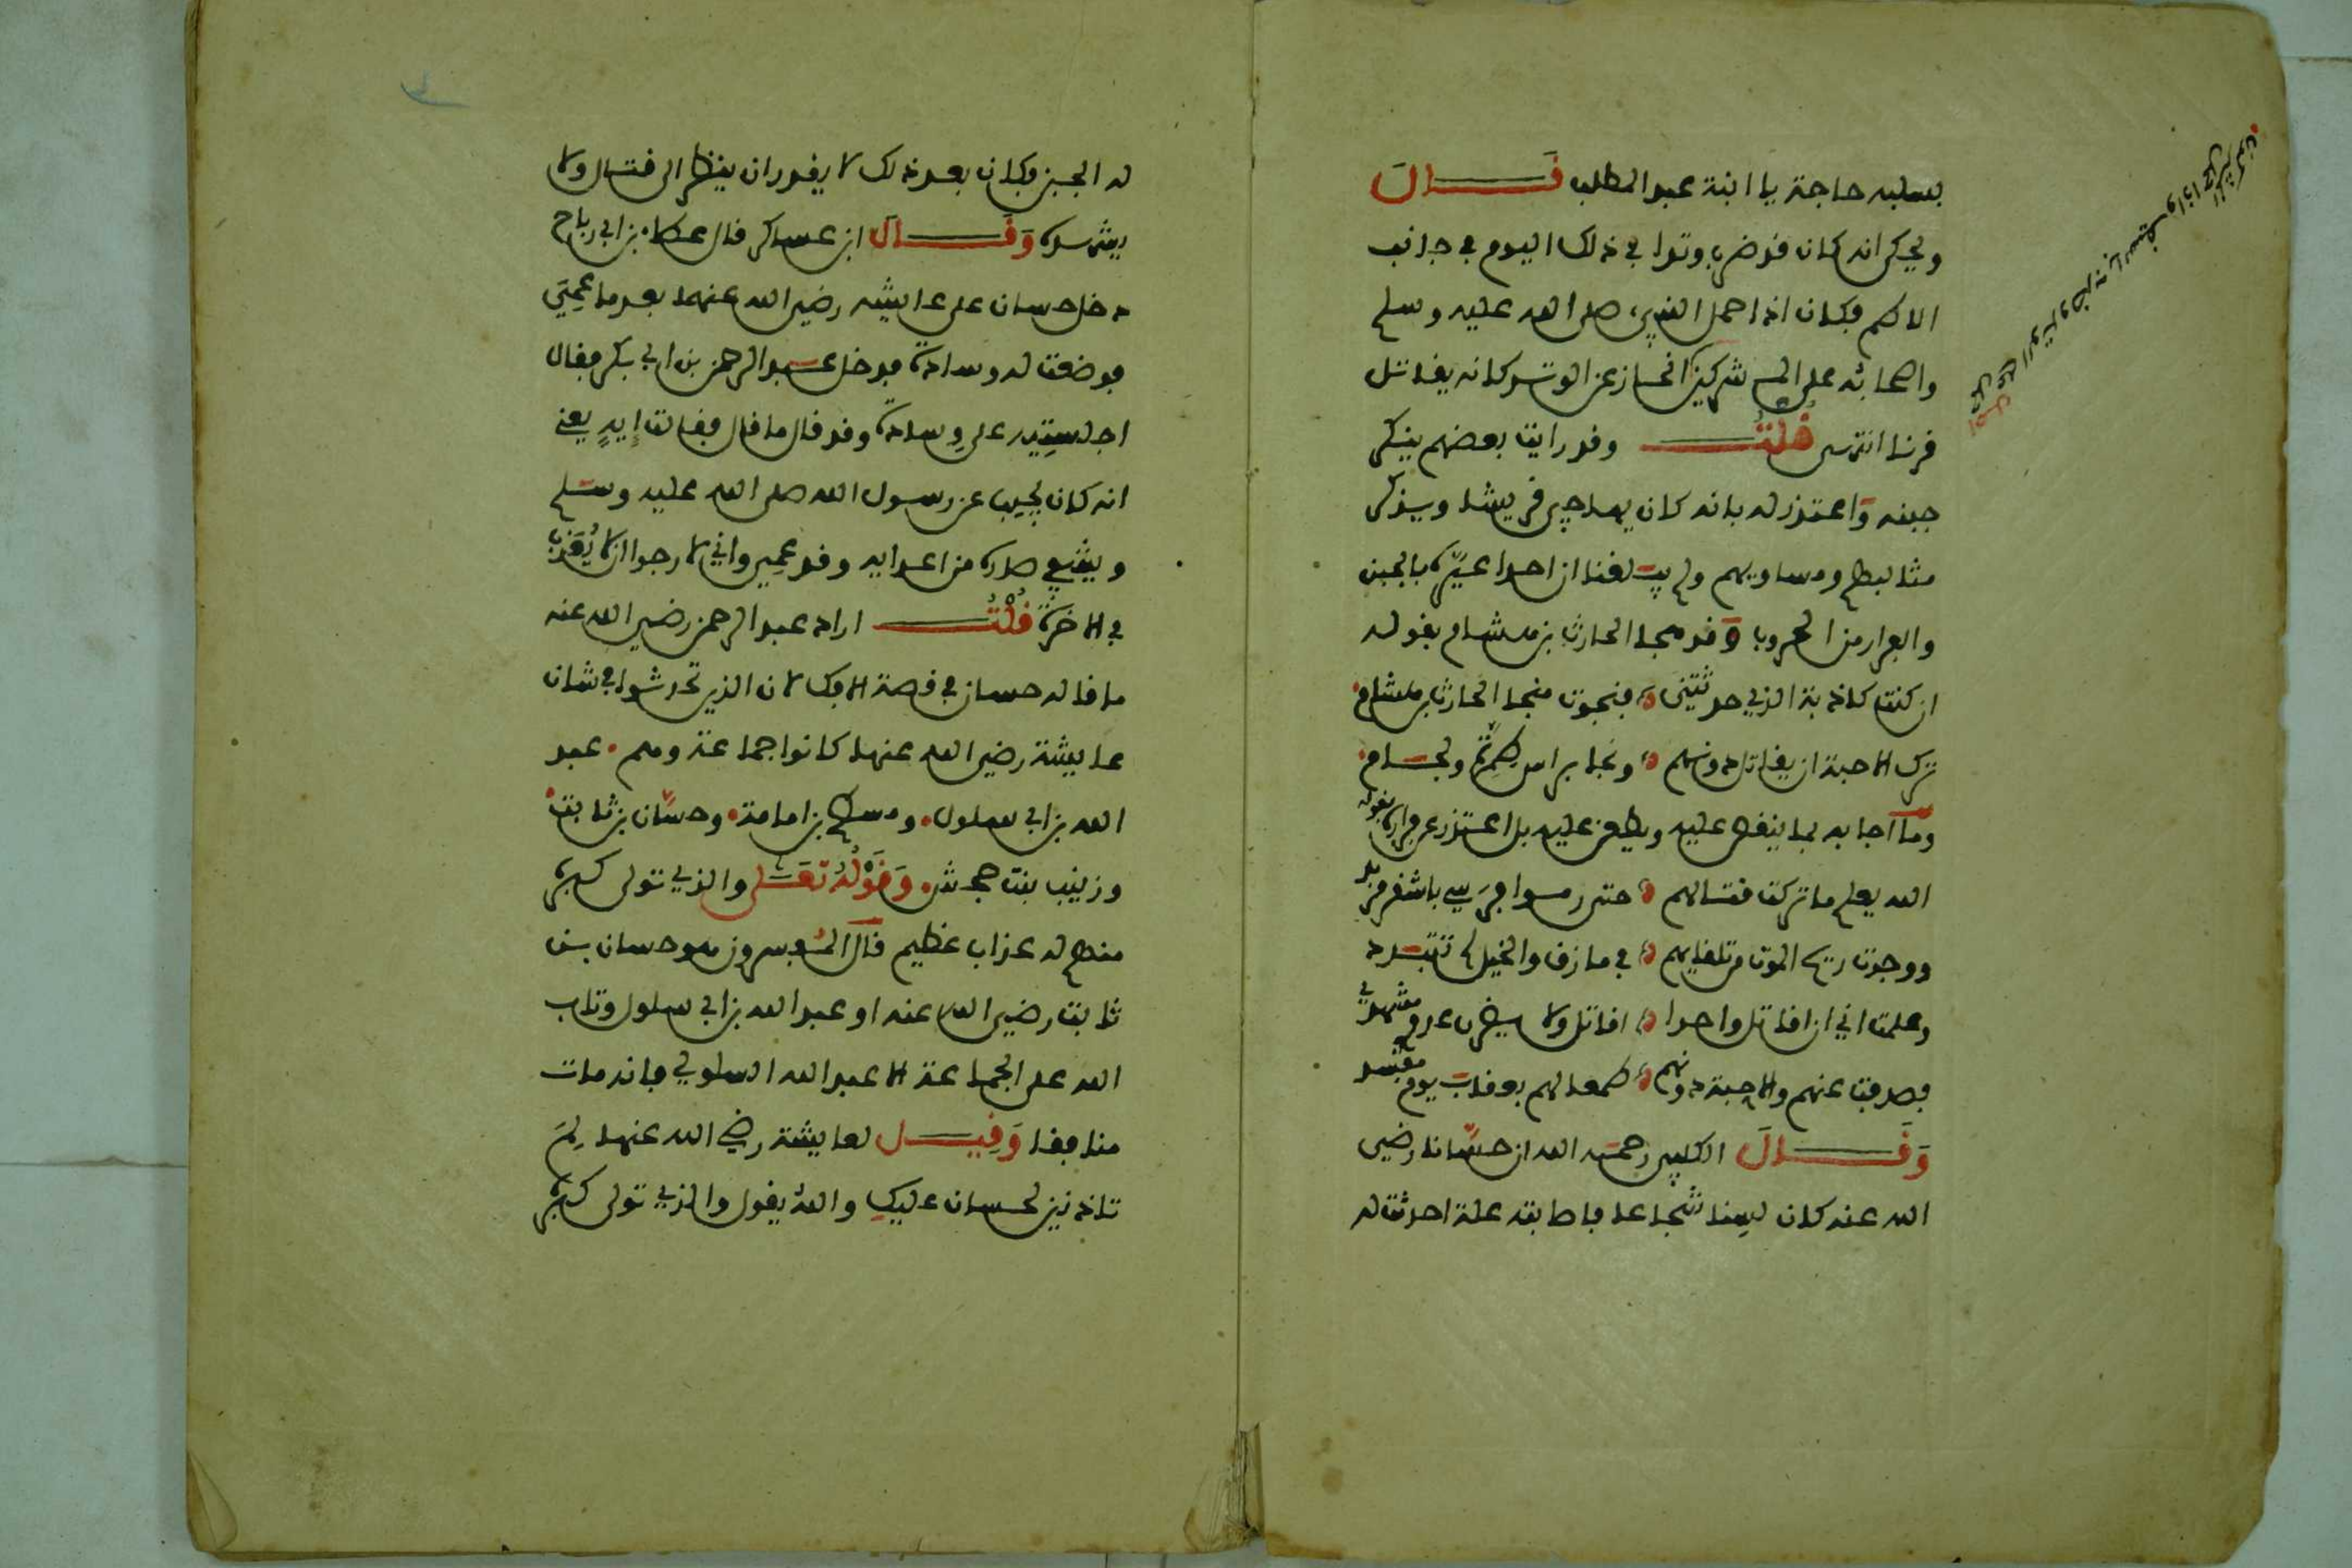 بسلبه حاجة يا ابنة عبد المطلب قال
وحكى انه كان قد ضرب وتدا في ذلك اليوم في جانب
الاطم فكان اذا حمل النبي صلى الله عليه وسلم
واصحابه على المشركين انحاز عن الوتد كانه يقاتل
قرنا انتهى قلت وقد رايت بعضهم ينكر
جبنه واعتذر له بانه كان يهاجي قريشا ويذكر
مثالبهم ومساويهم ولم يبلغنا ان احدا عيره بالجبن
والفرار من الحروب وقد هجا الحارث بن هشام بقوله
ان كنت كاذبة الذي حدثتني فنجوت منجا الحارث بن هشام
ترك الاحبة ان يقاتل دونهم ونجا براس طمرة ولجام
وما اجابه بما ينقص عليه ويطعن عليه بل اعتذر عن فراره بقوله
الله يعلم ما تركت قتالهم حتى رموا فرسي باشقر مزبد
ووجدت ريح الموت من تلقايهم في مازق والخيل لم تتبدد
وعلمت اني ان اقاتل واحدا اقاتل ولا يضرر عدوي مشهدي
فصدفت عنهم والاحبة دونهم طمعا لهم بعقاب يوم مفسد
وقال الكلبي رحمه الله ان حسانا رضي
الله عنه كان لسنا شجاعا فاصابته علة احدثت له
احمل على الوتد وضربه بالسيف واذا حمل المشركون
له الجبن فكان بعد ذلك لا يقدر ان ينظر الى قتال ولا
يشهده وقال ابن عساكر قال عطاء بن ابي رباح
دخل حسان على عايشه رضي الله عنها بعد ما عمي
فوضعت له وسادة فدخل عبد الرحمن بن ابي بكر فقال
اجلستيه على وسادة وقد قال ما قال فقالت إيه يعني
انه كان يجيب عن رسول الله صلى الله عليه وسلم
ويشفي صدره من اعدايه وقد عمي واني لارجوا ان لا يعذب
في الاخرة قلت اراد عبد الرحمن رضي الله عنه
ما قاله حسان في قصة الافك لان الذين تحدثوا في شان
عايشة رضي الله عنها كانوا جماعة وهم عبد
الله بن ابي سلول ومسطح بن امامة وحسان بن ثابت
وزينب بنت جحش وقوله تعلى والذي تولى كبره
منهم له عذاب عظيم قال المفسرون هو حسان بن
ثابت رضي الله عنه او عبد الله بن ابي سلول وتاب
الله على الجماعة الا عبد الله السلولي فانه مات
منافقا وقيل لعايشة رضي الله عنها لم
تاذنين لحسان عليك والله يقول والذي تولى كبره